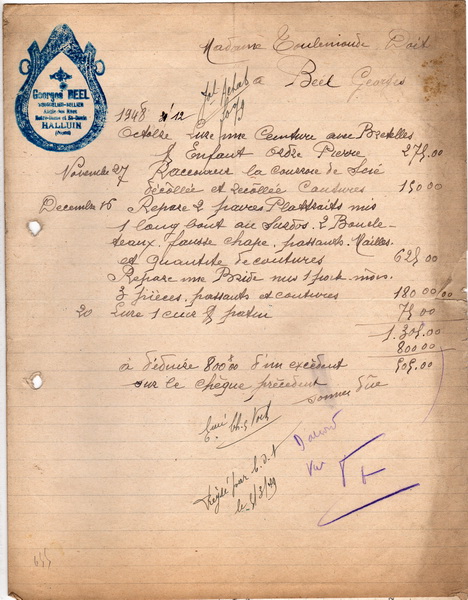 Georges BEEL
BOURRELIER-SELLIER
HALLUIN
(Nord)
Madame Toulemonde Doit
a Beel Georges
1948
Octobre Livré une Ceinture avec Bretelles
Enfant Ordre Pierre 275.00
Novembre 27 Raccourci la courroie de
décollée et recollée Coutures 150.00
Decembre 16 Reparé 2 paires Plattraits mis
1 long bout au Surdos. 2 Boucle-
teaux. fausse chape. passants. Mailles.
et Quantité de coutures 625.00
Reparé une Bride mis 1 mors.
3 pièces. passants et coutures 180.00
20 Livré 1 cuir 75.00
1.305.00
800.00
à déduire 800 d'un excédent 505.00
sur le chèque précédent
somme dûe
Réglé par
le 3/49
D'accord
Vu